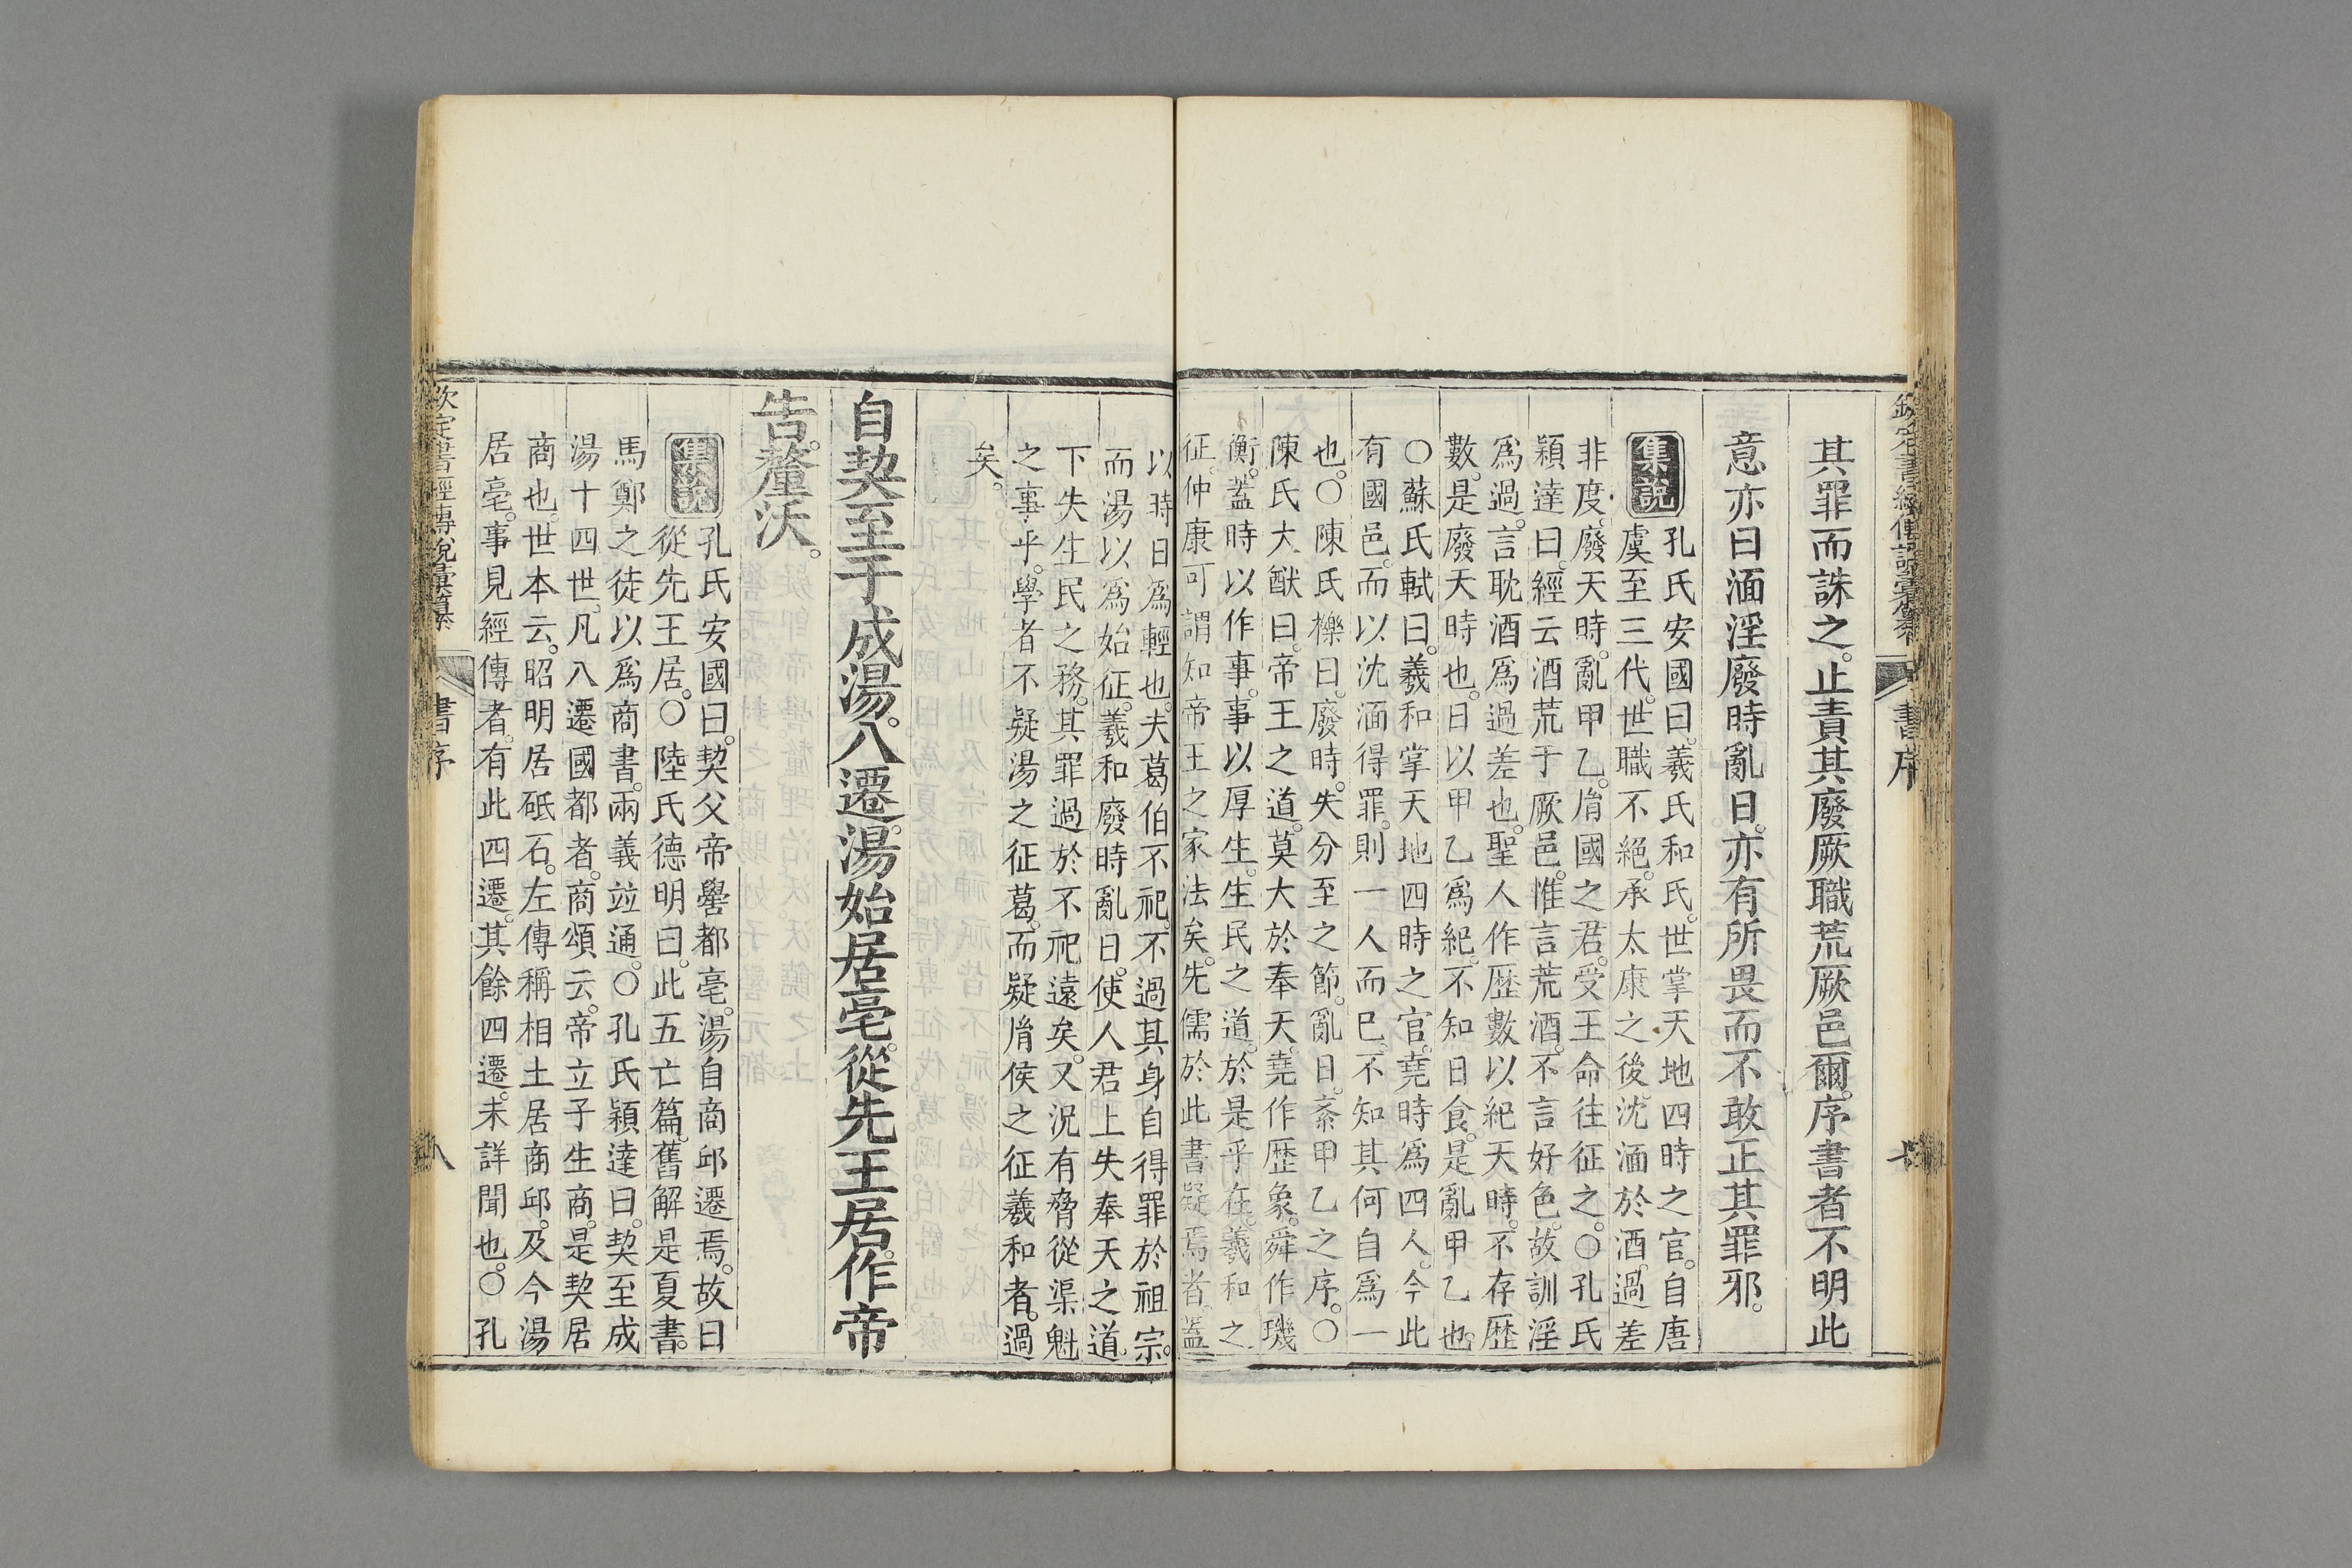 欽定書經傳說彙纂 書序 七
其罪而誅之。止責其廢厥職荒厥邑爾。序書者不明此
意亦曰湎淫廢時亂日。亦有所畏而不敢正其罪邪。
集說
孔氏安國曰。羲氏和氏。世掌天地四時之官。自唐
虞至三代。世職不絕。承太康之後。沈湎於酒。過差
非度。廢天時。亂甲乙。胤國之君。受王命往征之。○孔氏
穎達曰。經云酒荒于厥邑。惟言荒酒。不言好色。故訓淫
爲過。言耽酒爲過差也。聖人作歷數以紀天時。不存歷
數。是廢天時也。日以甲乙爲紀。不知日食。是亂甲乙也。
○蘇氏軾曰。羲和掌天地四時之官。堯時爲四人。今此
有國邑。而以沈湎得罪。則一人而已。不知其何自爲一
也。○陳氏櫟曰。廢時。失分至之節。亂日。紊甲乙之序。○
陳氏大猷曰。帝王之道。莫大於奉天。堯作歷象。舜作璣
衡。蓋時以作事。事以厚生。生民之道。於是乎在。羲和之
征。仲康可謂知帝王之家法矣。先儒於此書疑焉者。蓋
以時日爲輕也。夫葛伯不祀。不過其身自得罪於祖宗。
而湯以爲始征。羲和廢時亂日。使人君上失奉天之道。
下失生民之務。其罪過於不祀遠矣。又況有脅從渠魁
之事乎。學者不疑湯之征葛。而疑胤侯之征羲和者。過
矣。
自契至于成湯。八遷。湯始居亳。從先王居。作帝
告。釐沃。
集說
孔氏安國曰。契父帝嚳都亳。湯自商邱遷焉。故曰
從先王居。○陸氏德明曰。此五亡篇。舊解是夏書。
馬鄭之徒以爲商書。兩義竝通。○孔氏穎達曰。契至成
湯十四世。凡八遷國都者。商頌云。帝立子生商。是契居
商也。世本云。昭明居砥石。左傳稱相土居商邱。及今湯
居亳。事見經傳者。有此四遷。其餘四遷。未詳聞也。○孔
欽定書經傳說彙纂 書序 八